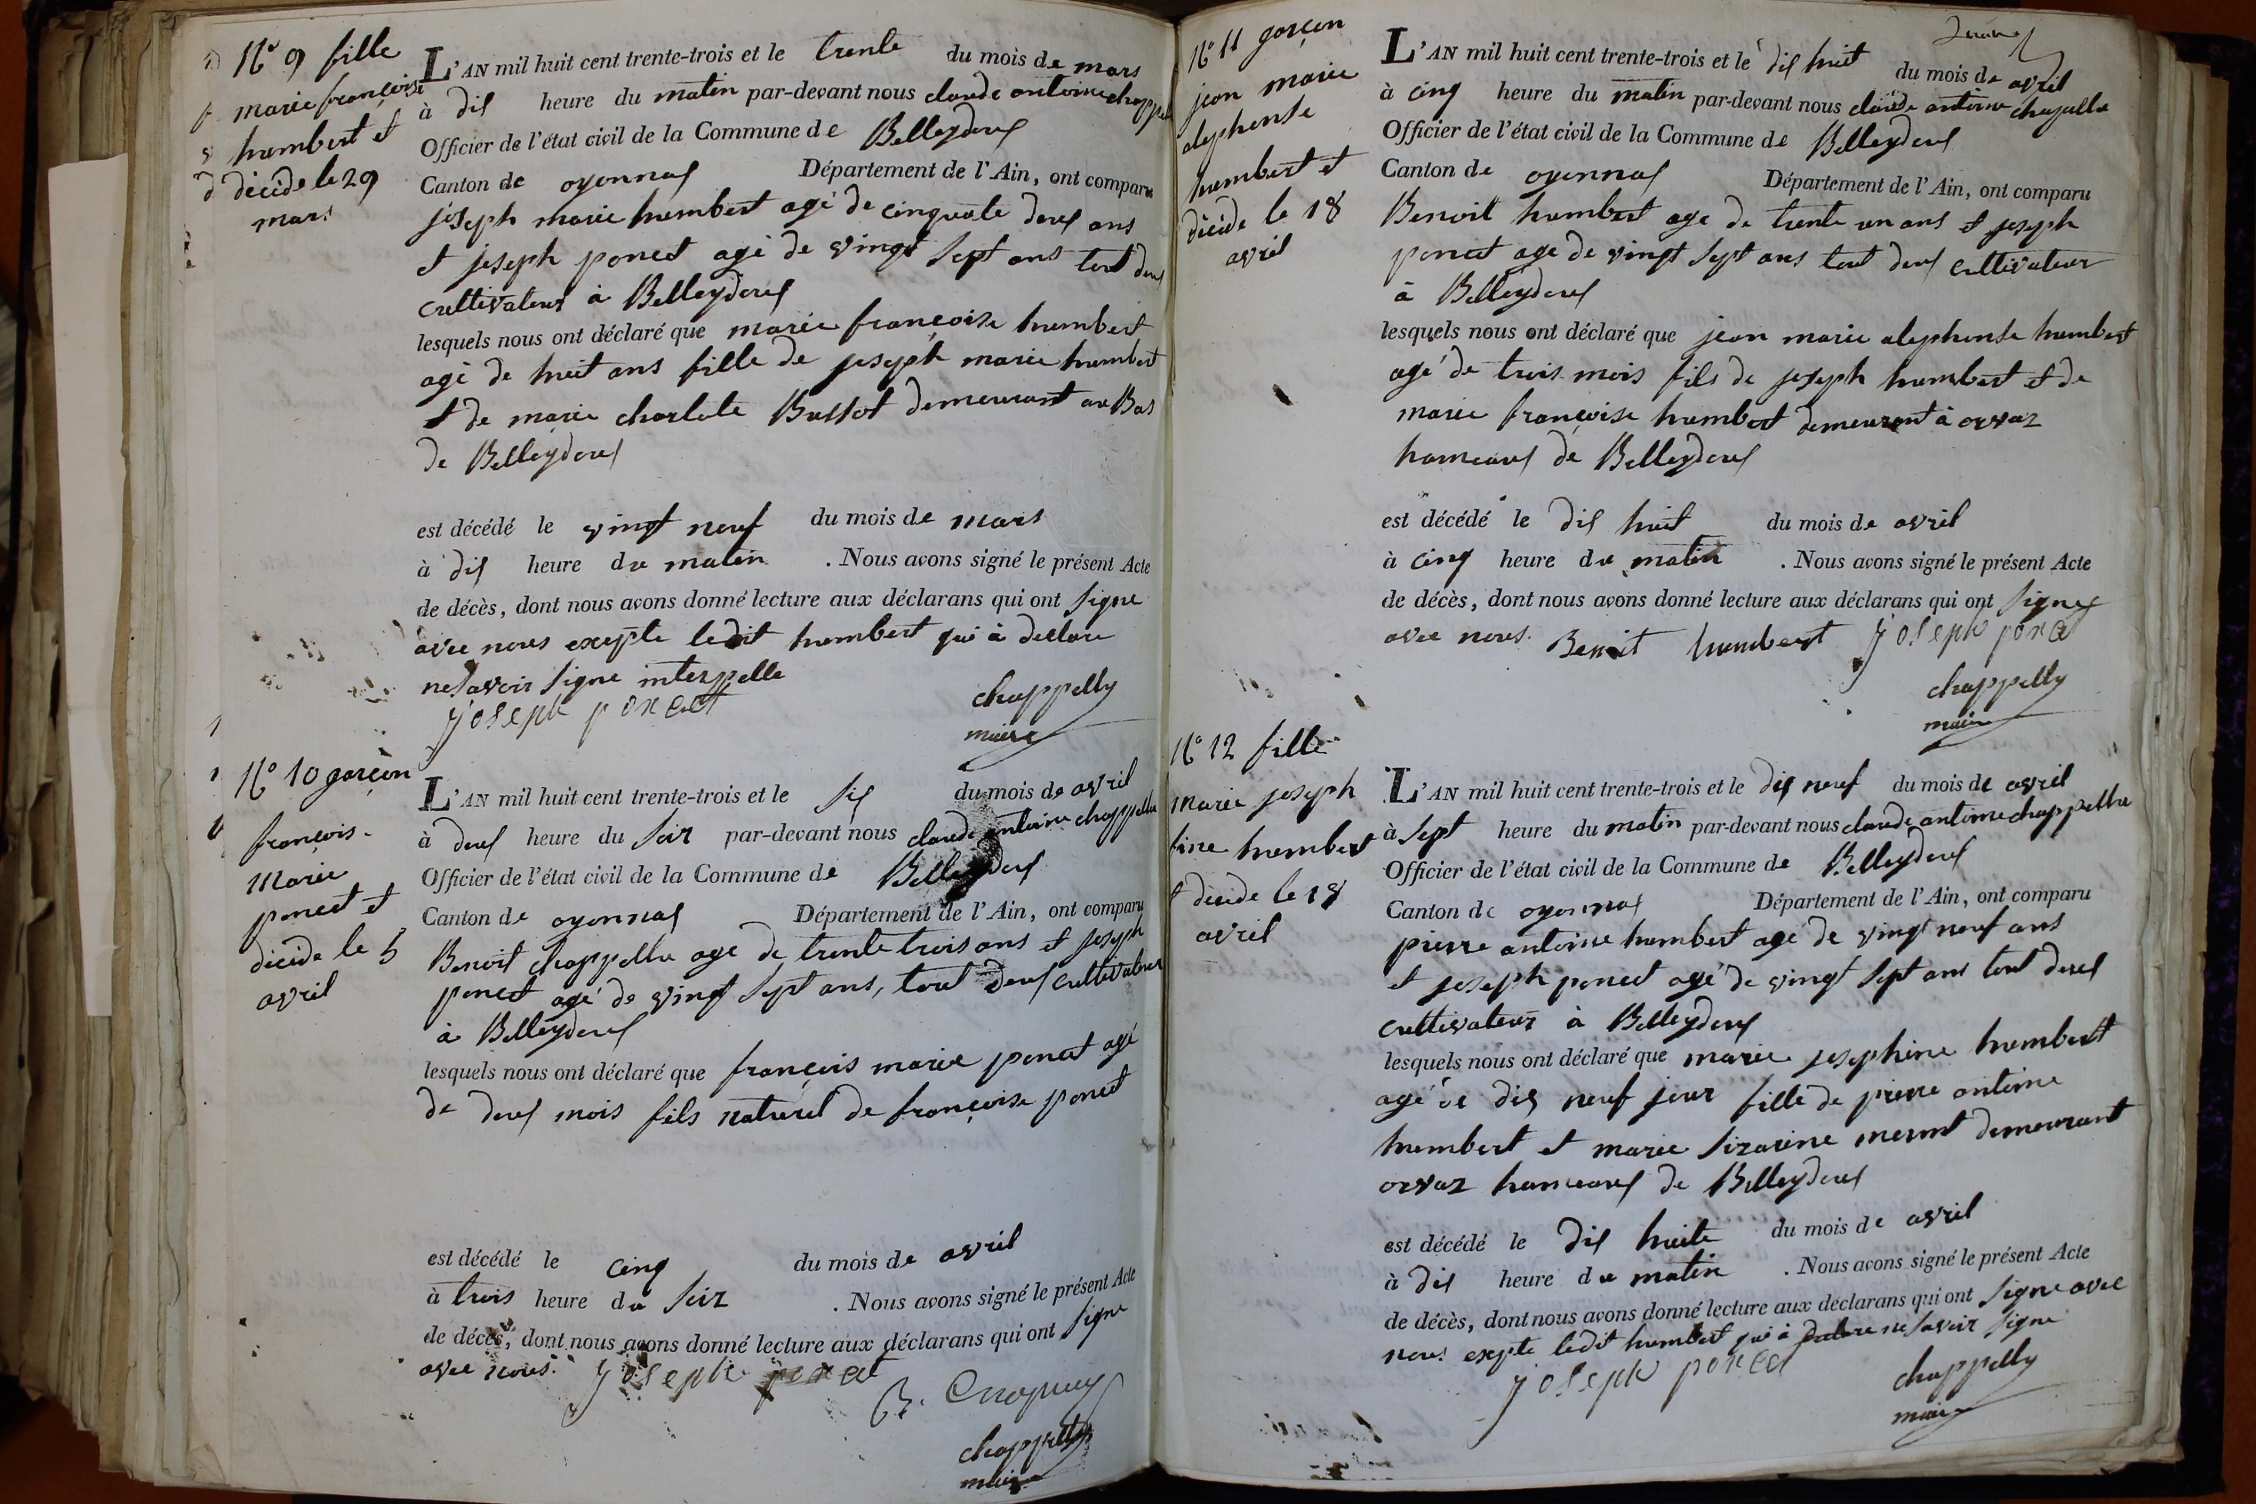 N° 9 fille
marie françoise
humbert et
décidé le 29
mars
L'AN mil huit cent trente-trois et le trente du mois de mars
à dix heure du matin par-devant nous claude antoine chappel
Officier de l'état civil de la Commune de Belleydoux
Canton de oyonnax Département de l'Ain, ont comparu
joseph marie humbert agé de cinquate deux ans
et joseph poncet agé de vingt sept ans tout deux
cultivateur à Belleydoux
lesquels nous ont déclaré que marie françoise humbert
agé de huit ans fille de joseph marie humbert
et de marie charlote Bussot demeurant au Bas
de Belleydoux
est décédé le vingt neuf du mois de mars
à dix heure du matin . Nous avons signé le présent Acte
de décès, dont nous avons donné lecture aux déclarans qui ont signe
avec nous exepte ledit humbert qui à declare
ne savoir signe interpelle
joseph poncet
chappelly
maire
N° 10 garçon
françois
marie
poncet et
décidé le 5
avril
L'AN mil huit cent trente-trois et le six du mois de avril
à deux heure du soir par-devant nous claude antoine chappellu
Officier de l'état civil de la Commune de Belleydoux
Canton de oyonnax Département de l'Ain, ont comparu
Benoit chappellu agé de trente trois ans et joseph
poncet agé de vingt sept ans, tout deux cultivateur
à Belleydoux
lesquels nous ont déclaré que françois marie poncet agé
de deux mois fils naturel de françoise poncet
est décédé le cinq du mois de avril
à trois heure du soir . Nous avons signé le présent Acte
de décès, dont nous avons donné lecture aux déclarans qui ont signe
avec nous. joseph poncet
chappelly
maire
N° 11 garçon
jean marie
alephonse
humbert et
décidé le 18
avril
L'AN mil huit cent trente-trois et le dix huit du mois de avril
à cinq heure du matin par-devant nous claude antoine chapellu
Officier de l'état civil de la Commune de Belleydoux
Canton de oyonnax Département de l'Ain, ont comparu
Benoit humbert age de trente un ans et joseph
poncet age de vingt sept ans tout deux cultivateur
à Belleydoux
lesquels nous ont déclaré que jean marie alephonse humbert
agé de trois mois fils de joseph humbert et de
marie françoise humbert demeurant à orvaz
hameaux de Belleydoux
est décédé le dix huit du mois de avril
à cinq heure du matin . Nous avons signé le présent Acte
de décès, dont nous avons donné lecture aux déclarans qui ont signe
avec nous. Benoit humbert joseph poncet
chappelly
maire
N° 12 fille
marie joseph
fine humbert
et décidé le 18
avril
L'AN mil huit cent trente-trois et le dix neuf du mois de avril
à sept heure du matin par-devant nous claude antoine chappellu
Officier de l'état civil de la Commune de Belleydoux
Canton de oyonnax Département de l'Ain, ont comparu
pierre antoine humbert agé de vingt neuf ans
et joseph poncet agé de vingt sept ans tout deux
cultivateur à Belleydoux
lesquels nous ont déclaré que marie josephine humbert
agé de dix neuf jour fille de pierre antoine
humbert et marie sizarine mermet demeurant
orvaz hameaux de Belleydoux
est décédé le dix huite du mois de avril
à dix heure du matin . Nous avons signé le présent Acte
de décès, dont nous avons donné lecture aux déclarans qui ont signe avec
nous exepte ledit humbert qui à declare ne savoir signe
joseph poncet
chappelly
maire